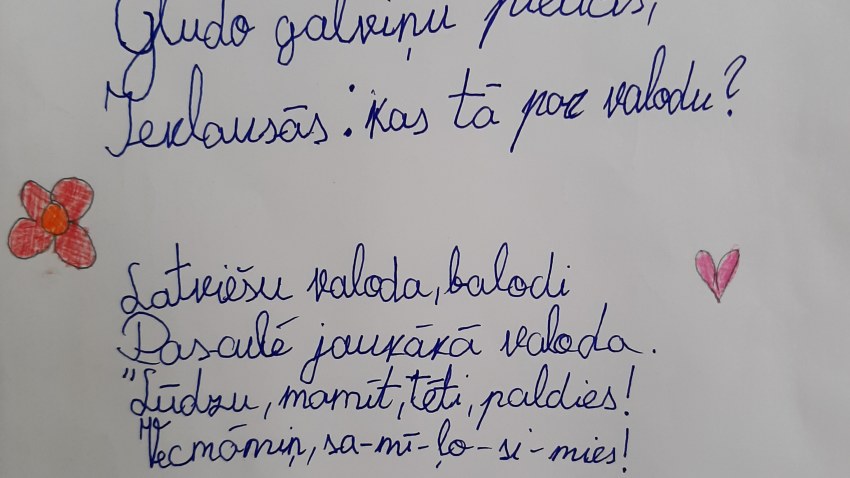 Gludo galviņu pieliecis,
Ieklausās: kas tā par valodu?
Latviešu valoda, balodi
Pasaulē jaukākā valoda.
"Lūdzu, mamīt, tēti, paldies!
Vecmāmiņ, sa-mī-ļo-si-mies!